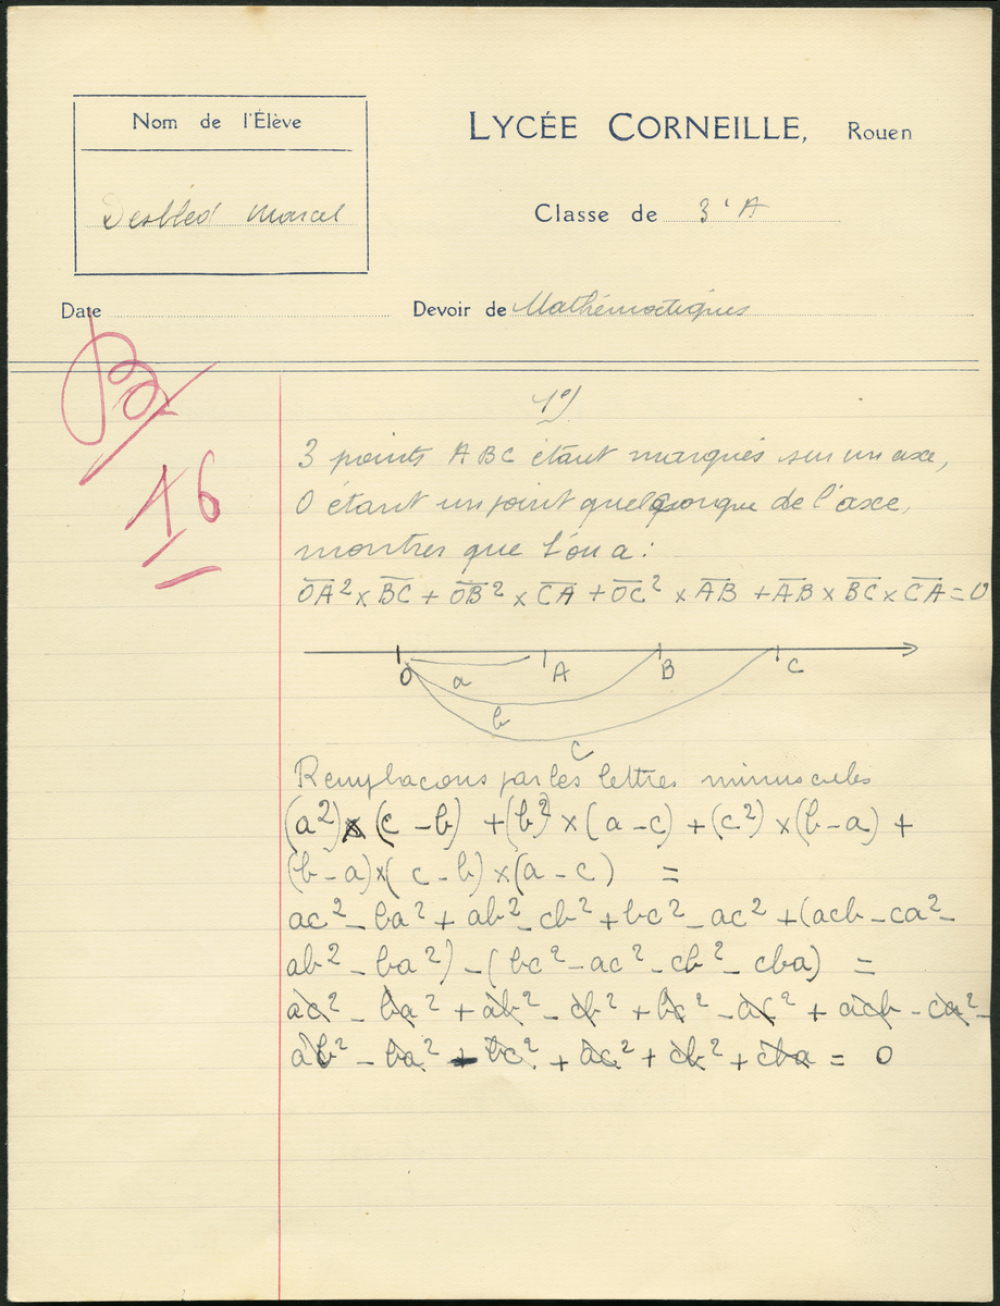 Nom de l'Élève
LYCÉE CORNEILLE, Rouen
Desbled Marcel
Classe de 3e A
Date
Devoir de Mathématiques
16
1°)
3 points A B C étant marqués sur un axe,
O étant un point quelqonque de l'axe,
montrer que l'on a :
OA² × BC + OB² × CA + OC² × AB + AB × BC × CA = 0
O a A B C
b
c
Remplacons par les lettres minuscules
(a²) × (c - b) + (b²) × (a - c) + (c²) × (b - a) +
(b - a) × (c - b) × (a - c) =
ac² - ba² + ab² - cb² + bc² - ac² + (acb - ca² -
ab² - ba²) - (bc² - ac² - cb² - cba) =
ac² - ba² + ab² - cb² + bc² - ac² + acb - ca² -
ab² - ba² - bc² + ac² + cb² + cba = 0